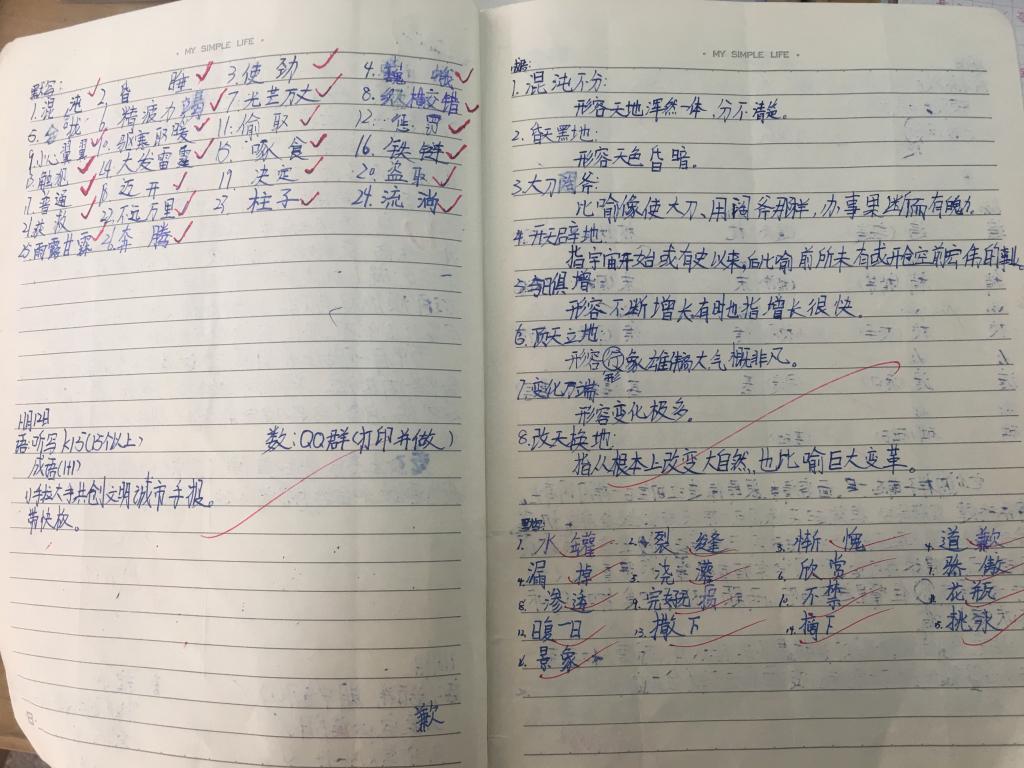 MY SIMPLE LIFE
默写:
1.混沌 2.昏睡 3.使劲 4.
5. 6.精疲力竭 7.光芒万丈 8.纵横交错
9.小心翼翼 10.驱寒取暖 11.偷取 12.惩罚
13.触犯 14.大发雷霆 15.啄食 16.铁链
17.普通 18.迈开 19.决定 20.盗取
21.获救 22.不远万里 23.柱子 24.流淌
25.雨露甘霖 26.奔腾
11月12日
语:听写k15(15个以上)
成语(1+1)
小手拉大手共创文明城市手报。
带快板。
数:QQ群(打印并做)
歉
MY SIMPLE LIFE
成语:
1.混沌不分:
形容天地浑然一体,分不清楚。
2.昏天黑地:
形容天色昏暗。
3.大刀阔斧:
比喻像使大刀、用阔斧那样,办事果断而有魄力。
4.开天辟地:
指宇宙开始或有史以来,也比喻前所未有或开创空前宏伟的事业。
5.与日俱增
形容不断增长有时也指增长很快。
6.顶天立地:
形容形象雄伟高大气概非凡。
7.变化万端
形容变化极多。
8.改天换地:
指从根本上改变大自然,也比喻巨大变革。
默写:
1.水罐 2.裂缝 3.惭愧 4.道歉
4.漏掉 5.浇灌 6.欣赏 7.骄傲
8.渗透 9.完好无损 10.不禁 11.花瓶
12.日复一日 13.撒下 14.摘下 15.挑水
16.景象